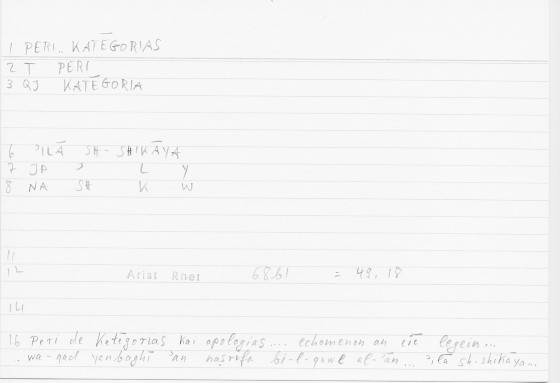 1 PERI.. KATĒGORIAS
2 T PERI
3 QJ KATĒGORIA
6 ʾILĀ SH-SHIKĀYA
7 JP ʾ L Y
8 NA SH K W
11
12 Arist Rhet 6861 = 49,18
14
16 Peri de Katēgorias kai apologias.... echomenon an eiē legein...
. wa-qad yanbaghī ʾan naṣrifa bi-l-qawl al-ʾān... ʾilā sh-shikāya...